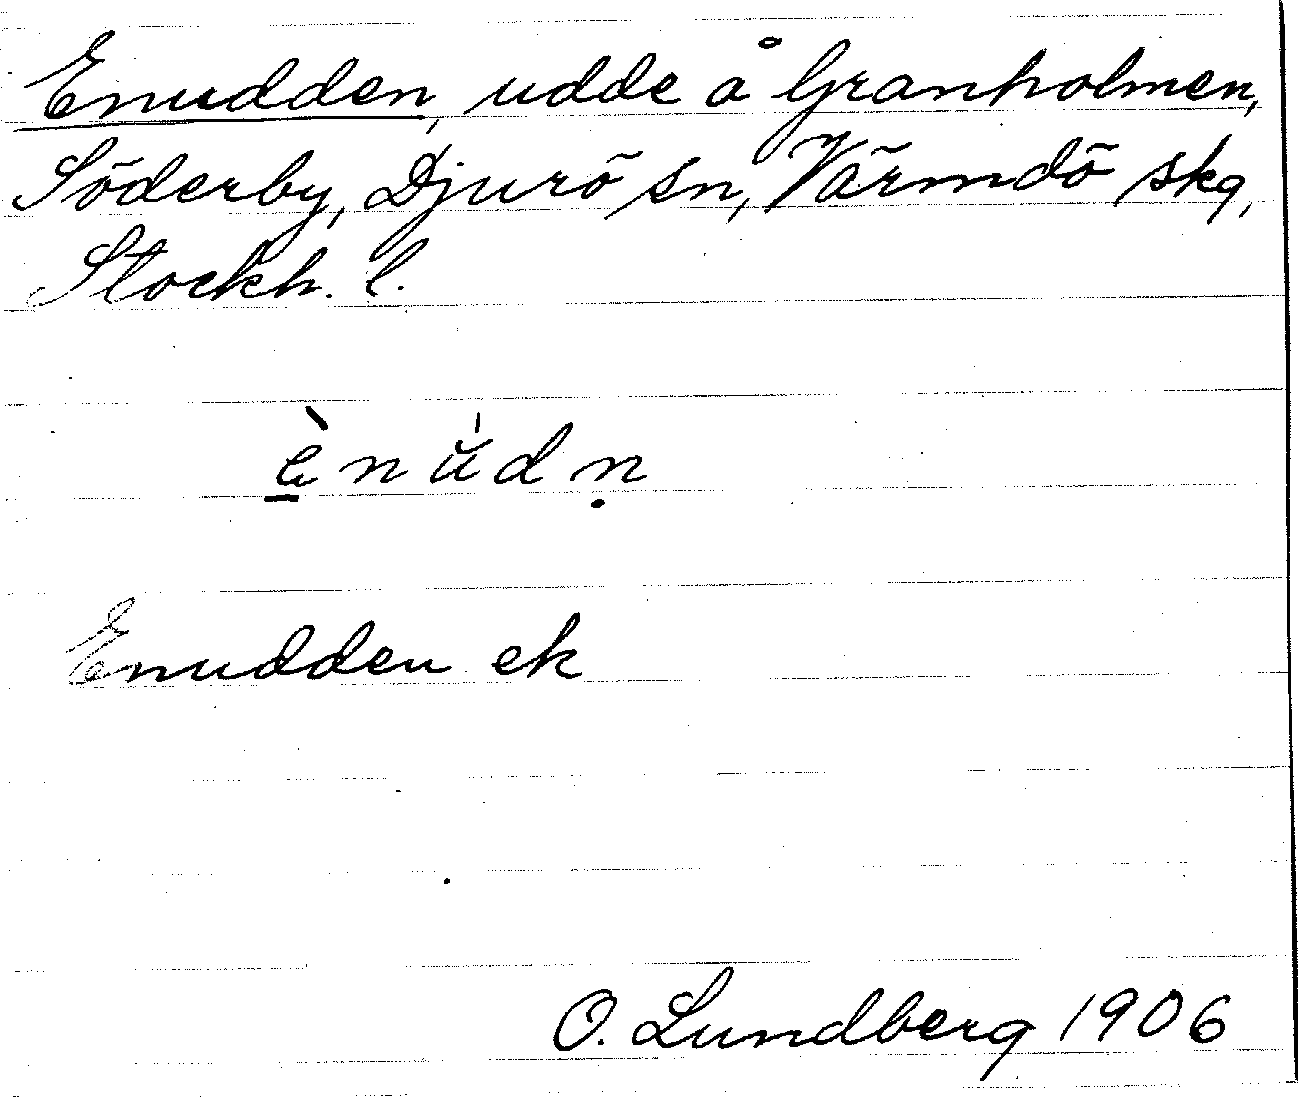 Enudden, udde å Granholmen,
Söderby, Djurö sn, Värmdö skg,
Stockh. l.
è̲nŭ́dṇ
Enudden ek
O. Lundberg 1906